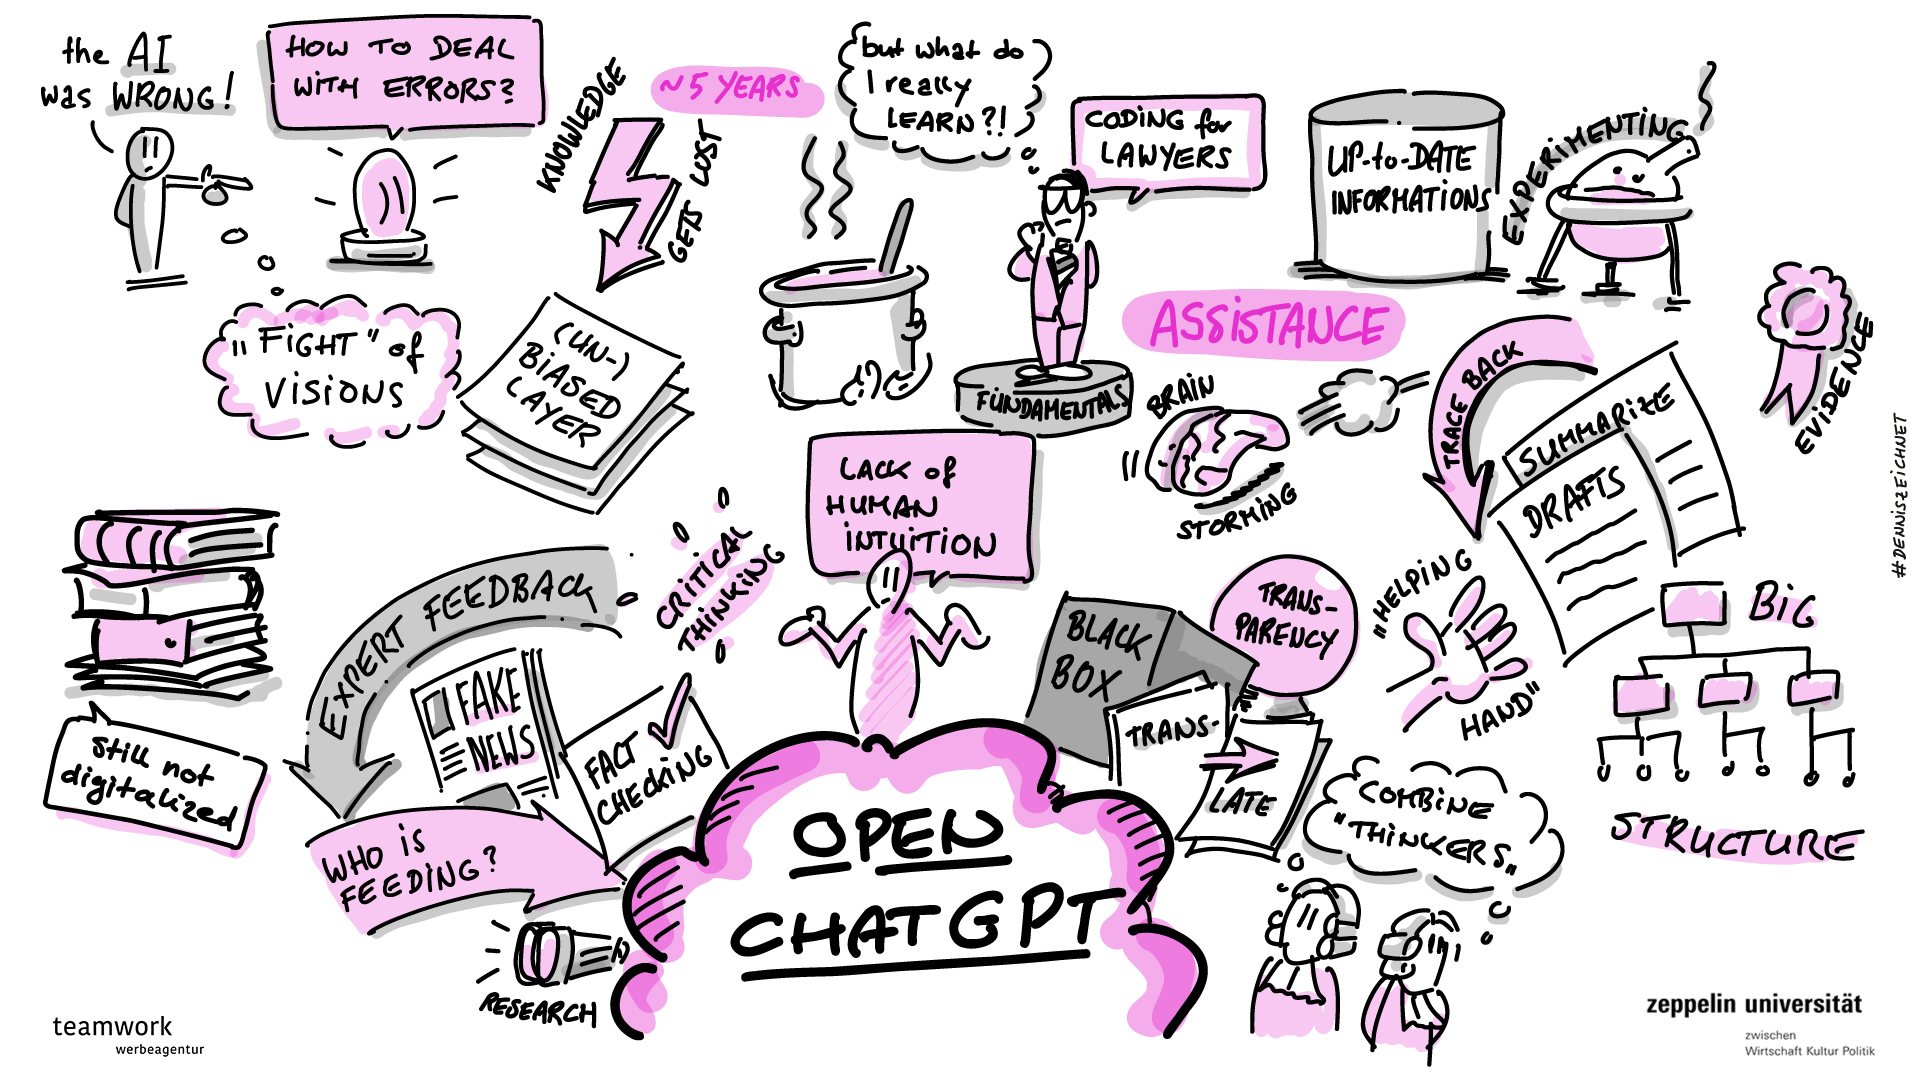 the AI
was WRONG!
HOW TO DEAL
WITH ERRORS?
KNOWLEDGE
GETS LOST
~5 YEARS
but what do
I really
LEARN?!
CODING for
LAWYERS
UP-to-DATE
INFORMATIONS
EXPERIMENTING
"FIGHT" of
VISIONS
(UN-)
BIASED
LAYER
FUNDAMENTALS
ASSISTANCE
BRAIN
STORMING
TRACE BACK
SUMMARIZE
DRAFTS
EVIDENCE
#DENNISZEICHNET
still not
digitalized
EXPERT FEEDBACK
CRITICAL
THINKING
LACK of
HUMAN
INTUITION
FAKE
NEWS
FACT
CHECKING
WHO IS
FEEDING?
RESEARCH
BLACK
BOX
TRANS-
PARENCY
TRANS-
LATE
"HELPING
HAND"
BIG
STRUCTURE
COMBINE
"THINKERS"
OPEN
CHATGPT
teamwork
werbeagentur
zeppelin universität
zwischen
Wirtschaft Kultur Politik